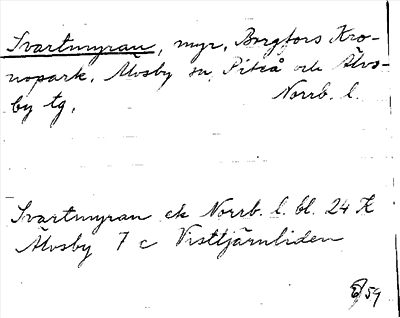 Svartmyran, myr, Borgfors Kro-
nopark, Älvsby sn, Piteå och Älvs-
by tg, Norrb. l.
Svartmyran ek Norrb. l. bl. 24 K
Älvsby 7 c Visttjärnliden
59